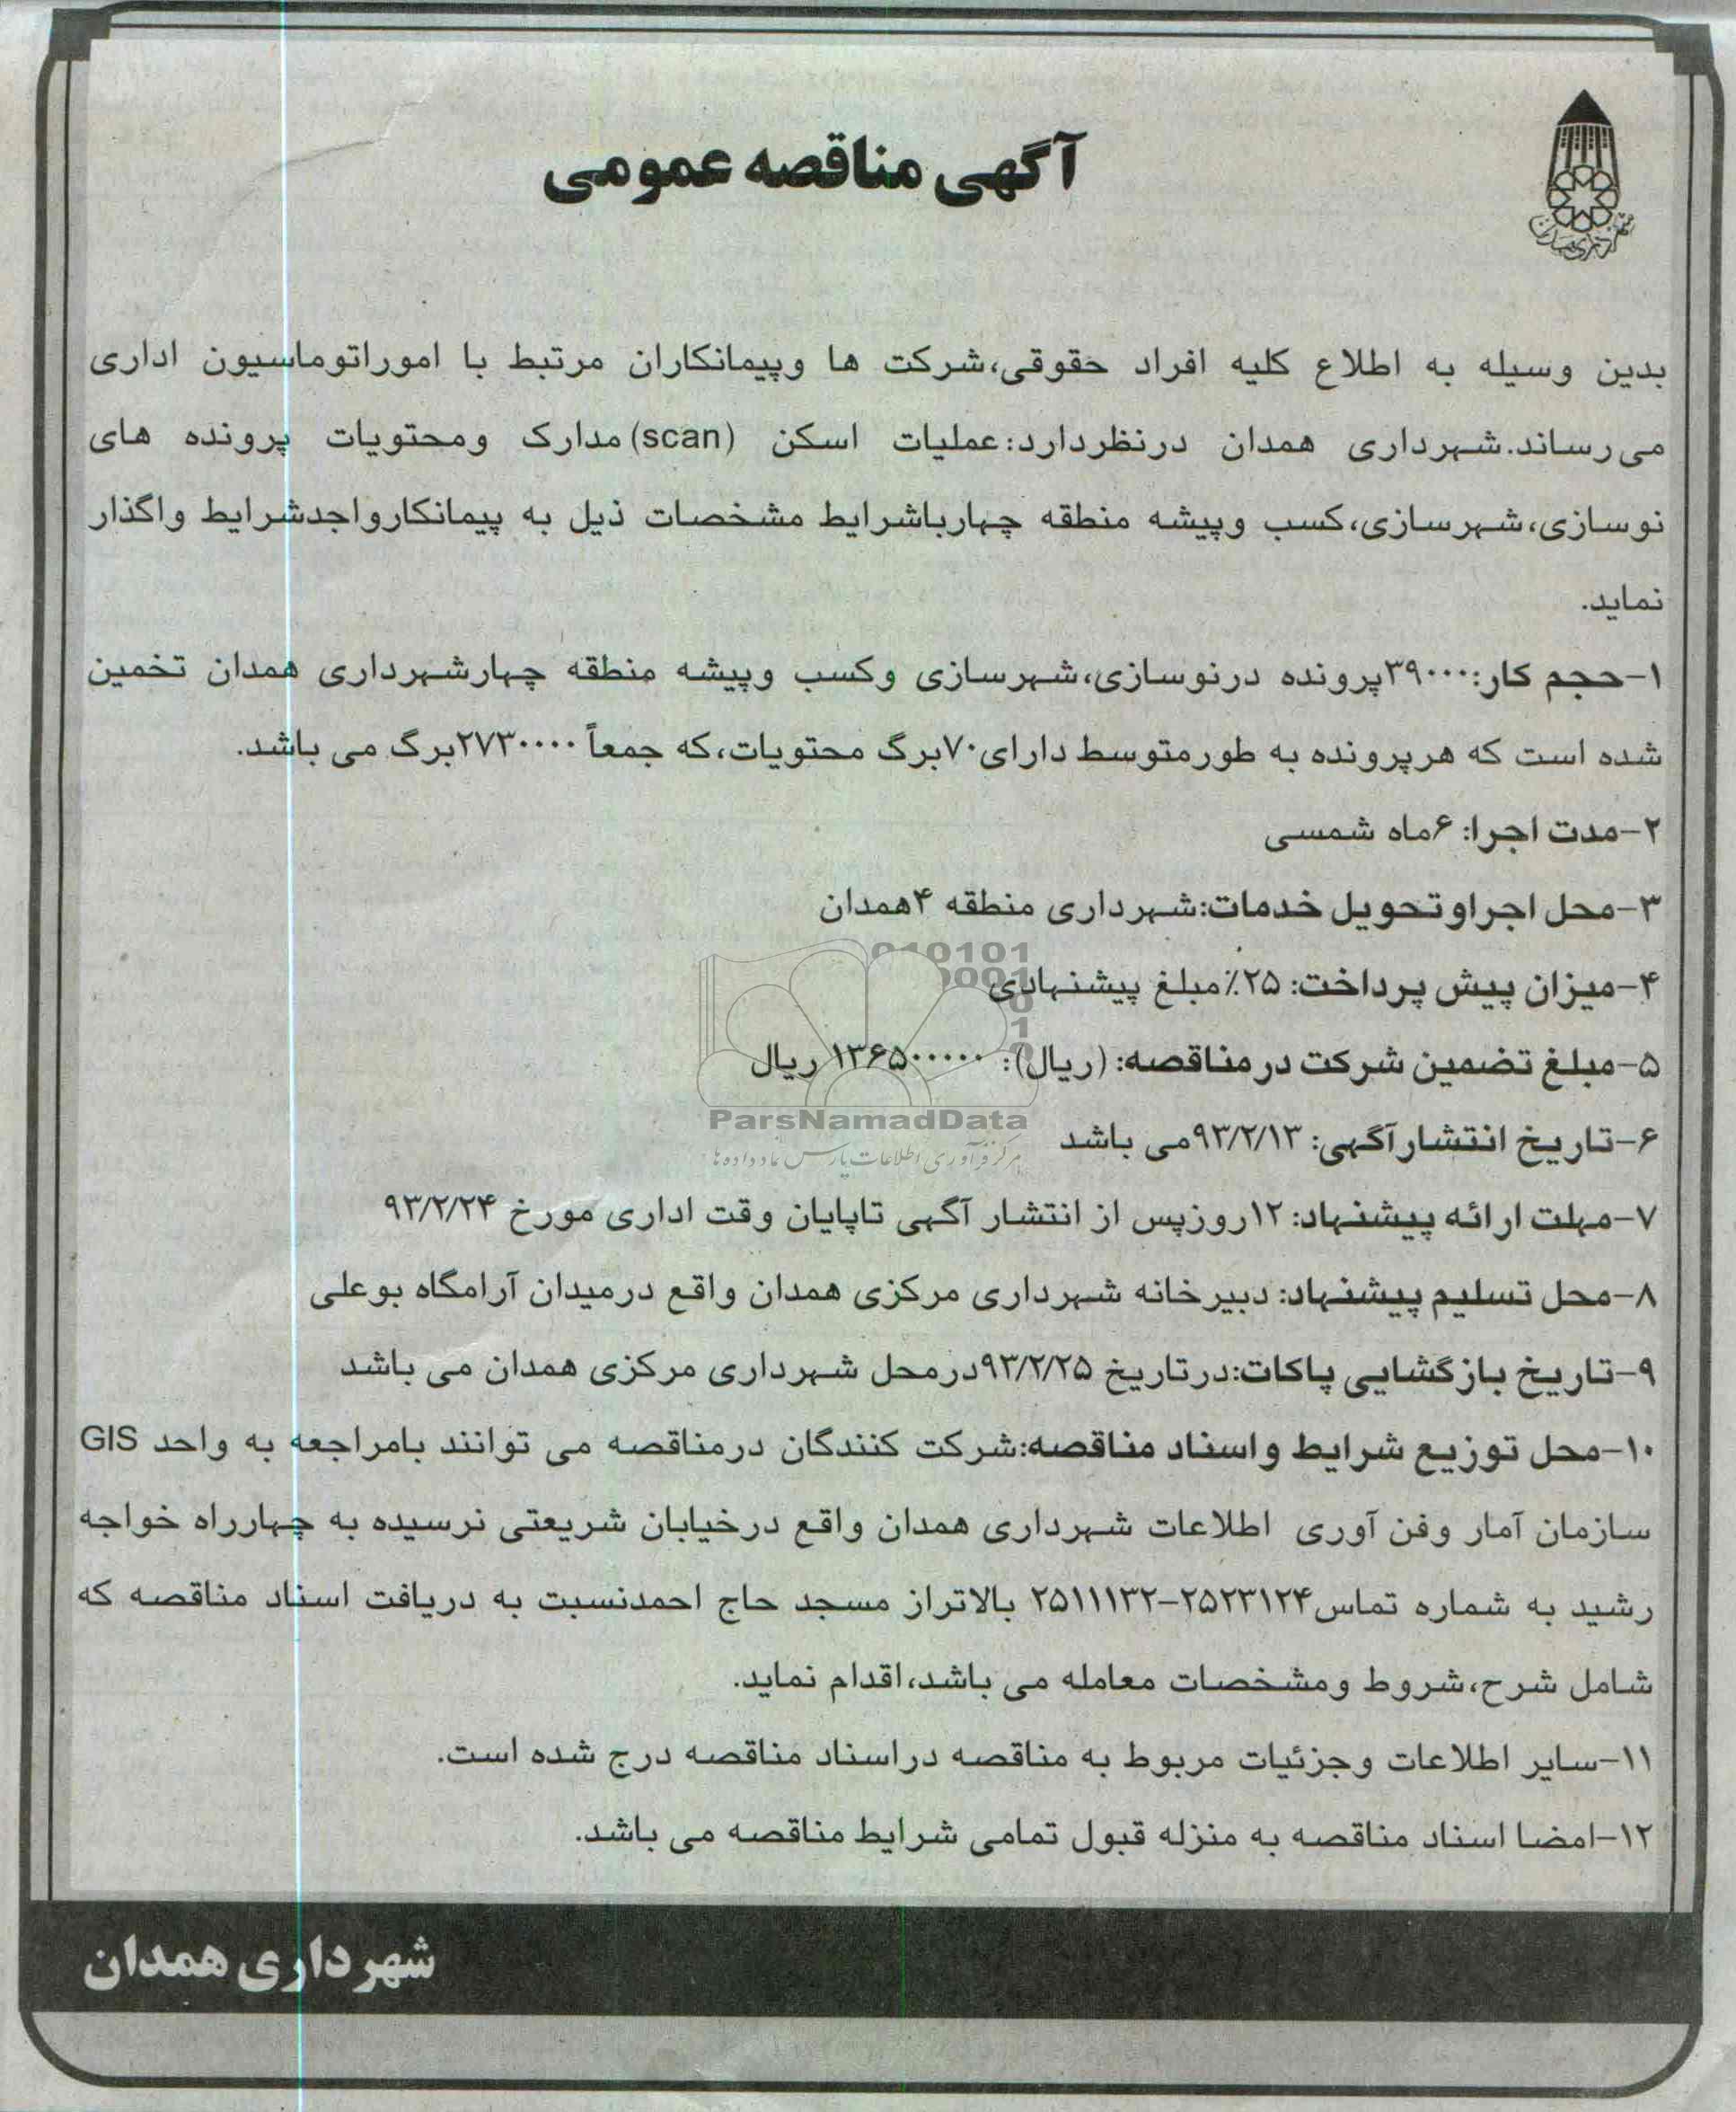 آگهی مناقصه عمومی
شهرداری همدان
بدین وسیله به اطلاع کلیه افراد حقوقی،شرکت ها وپیمانکاران مرتبط با اموراتوماسیون اداری
می‌رساند.شهرداری همدان درنظردارد:عملیات اسکن (scan) مدارک ومحتویات پرونده های
نوسازی،شهرسازی،کسب وپیشه منطقه چهارباشرایط مشخصات ذیل به پیمانکارواجدشرایط واگذار
نماید.
۱-حجم کار:۳۹۰۰۰پرونده درنوسازی،شهرسازی وکسب وپیشه منطقه چهارشهرداری همدان تخمین
شده است که هرپرونده به طورمتوسط دارای۷۰برگ محتویات،که جمعاً ۲۷۳۰۰۰۰برگ می باشد.
۲-مدت اجرا: ۶ماه شمسی
۳-محل اجراوتحویل خدمات:شهرداری منطقه ۴همدان
۴-میزان پیش پرداخت: ۲۵٪مبلغ پیشنهادی
۵-مبلغ تضمین شرکت درمناقصه: (ریال): ۱۳۶۵۰۰۰۰۰ ریال
ParsNamadData
۶-تاریخ انتشارآگهی: ۹۳/۲/۱۳می باشد
مرکز فرآوری اطلاعات پارس نماد داده ها
۷-مهلت ارائه پیشنهاد: ۱۲روزپس از انتشار آگهی تاپایان وقت اداری مورخ ۹۳/۲/۲۴
۸-محل تسلیم پیشنهاد: دبیرخانه شهرداری مرکزی همدان واقع درمیدان آرامگاه بوعلی
۹-تاریخ بازگشایی پاکات:درتاریخ ۹۳/۲/۲۵درمحل شهرداری مرکزی همدان می باشد
۱۰-محل توزیع شرایط واسناد مناقصه:شرکت کنندگان درمناقصه می توانند بامراجعه به واحد GIS
سازمان آمار وفن آوری اطلاعات شهرداری همدان واقع درخیابان شریعتی نرسیده به چهارراه خواجه
رشید به شماره تماس۲۵۲۳۱۲۴-۲۵۱۱۱۳۲ بالاتراز مسجد حاج احمدنسبت به دریافت اسناد مناقصه که
شامل شرح،شروط ومشخصات معامله می باشد،اقدام نماید.
۱۱-سایر اطلاعات وجزئیات مربوط به مناقصه دراسناد مناقصه درج شده است.
۱۲-امضا اسناد مناقصه به منزله قبول تمامی شرایط مناقصه می باشد.
شهرداری همدان